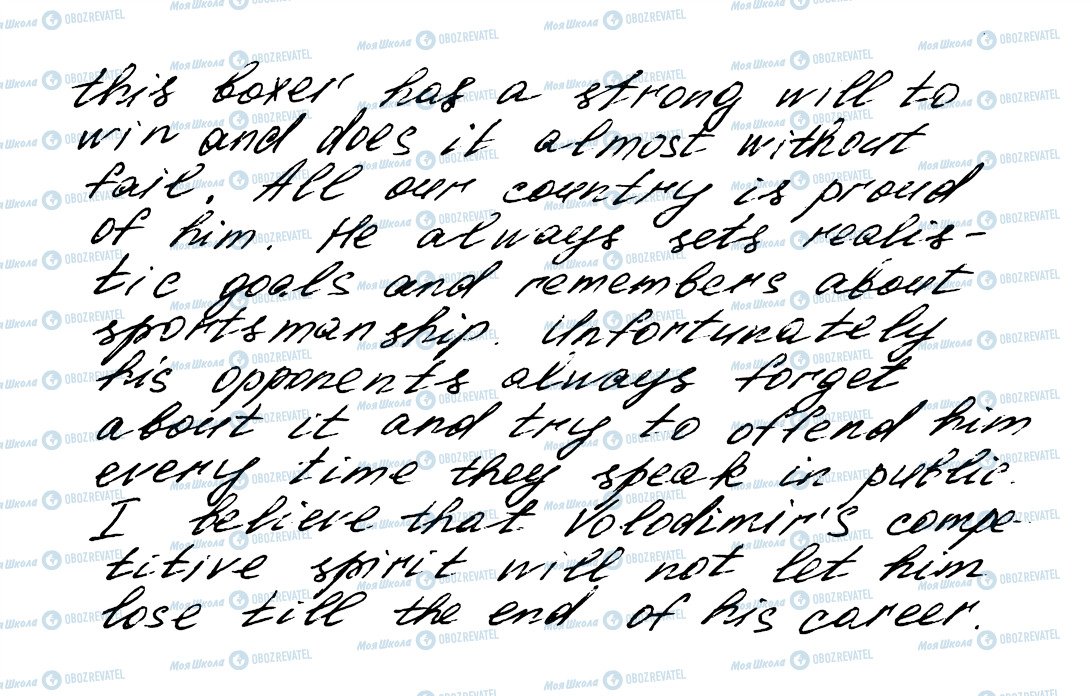 this boxer has a strong will to
win and does it almost without
fail. All our country is proud
of him. He always sets realis-
tic goals and remembers about
sportsmanship. Unfortunately
his opponents always forget
about it and try to offend him
every time they speak in public.
I believe that Volodimir's compe-
titive spirit will not let him
lose till the end of his career.